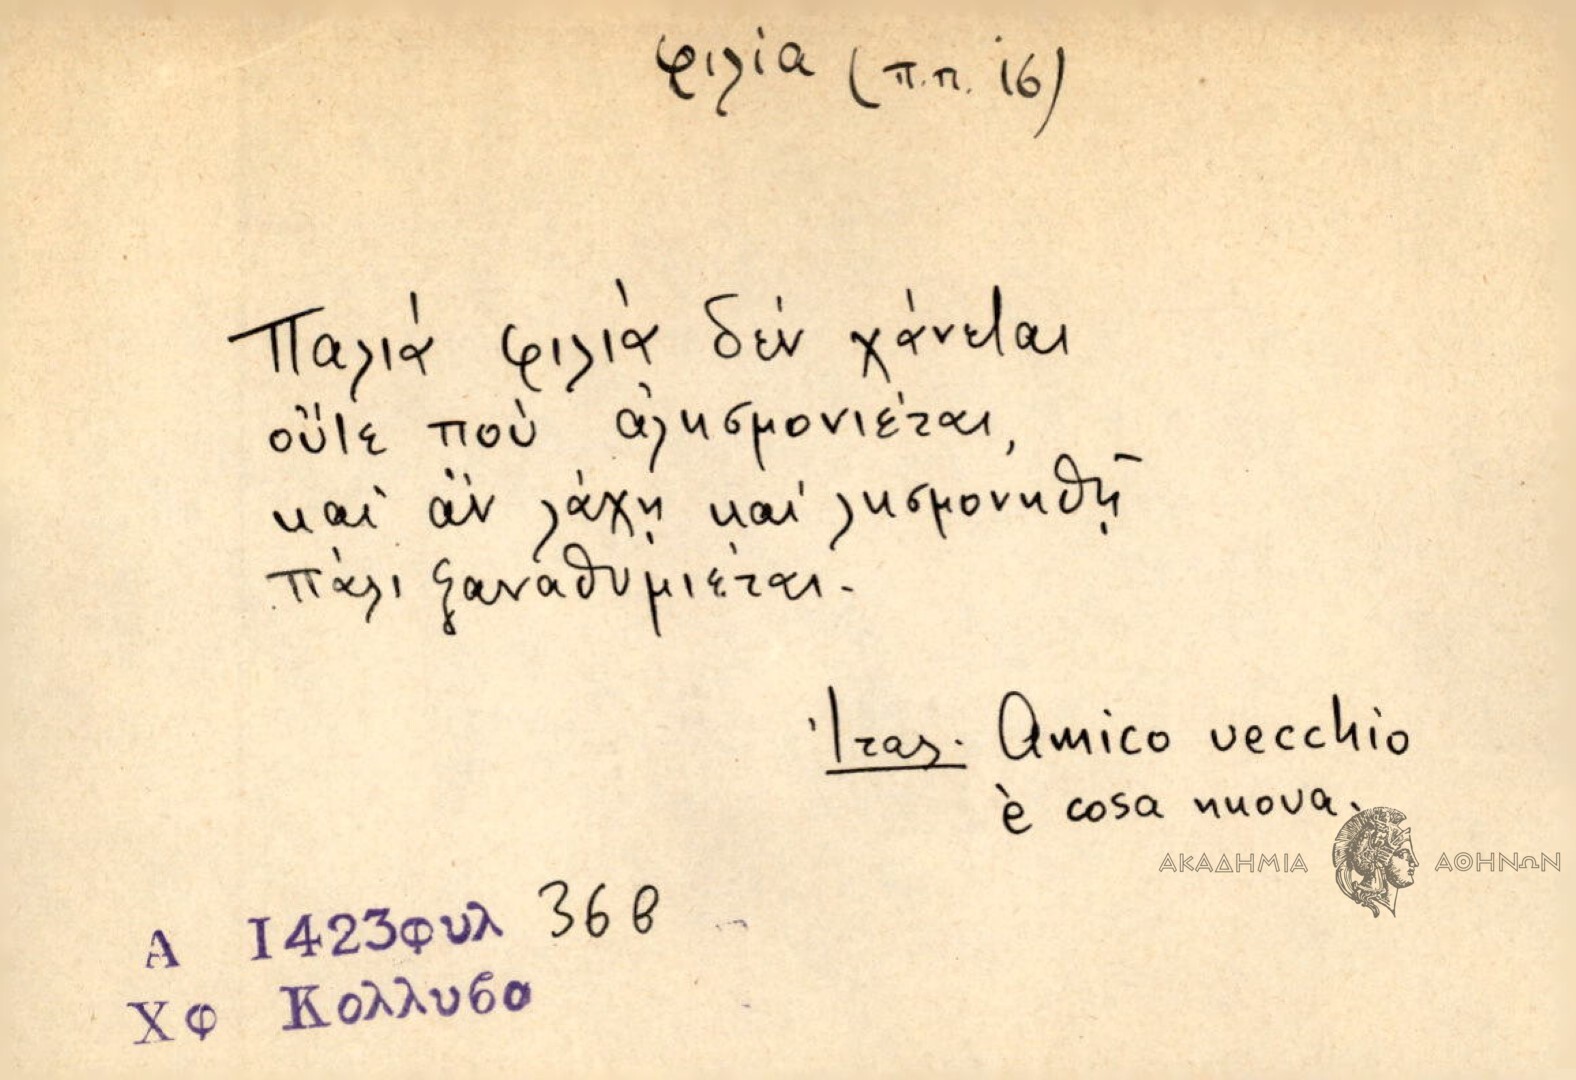 φιλία (π.π. 16)
Παλιά φιλιὰ δέν χάνεται
οὔτε ποὺ ἀλησμονιέται,
καὶ ἄν λάχῃ καί λησμονηθῇ
πάλι ξαναθυμιέται.
Ἰταλ. Amico vecchio
è cosa nuova.
ΑΚΑΔΗΜΙΑ ΑΘΗΝΩΝ
Α 1423φυλ 36β
Χφ Κολλυβα